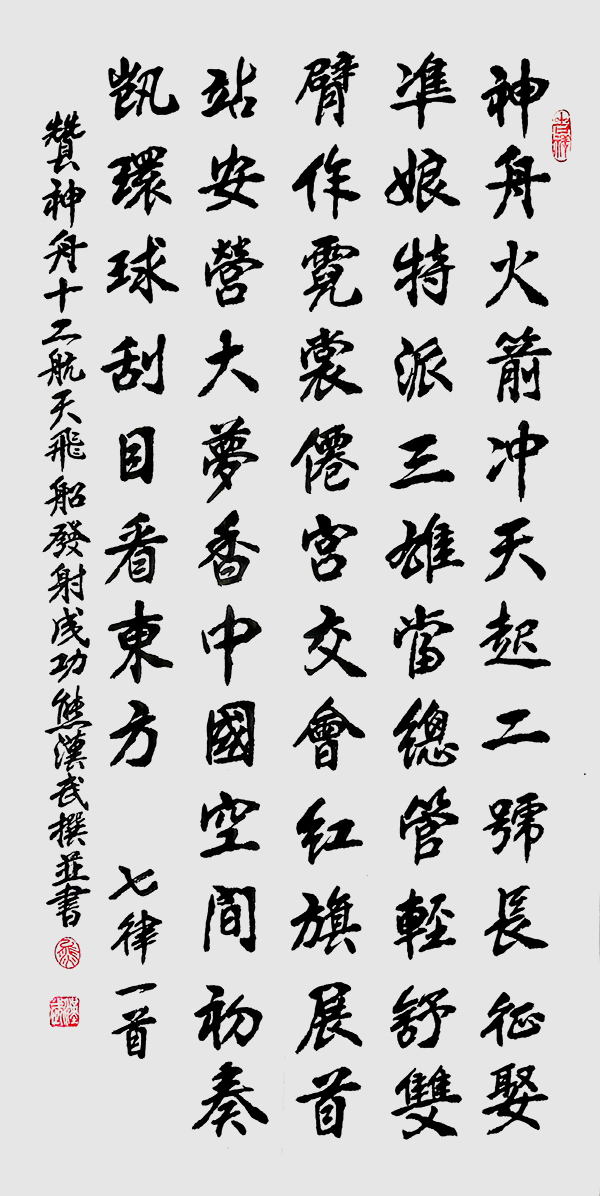 神舟火箭冲天起二號長征娶
凖娘特派三雄當總管輕舒雙
臂作霓裳僊宮交會红旗展首
站安營大夢香中國空間初奏
凱環球刮目看東方 七律一首
贊神舟十二航天飛船發射成功熊漢武撰並書